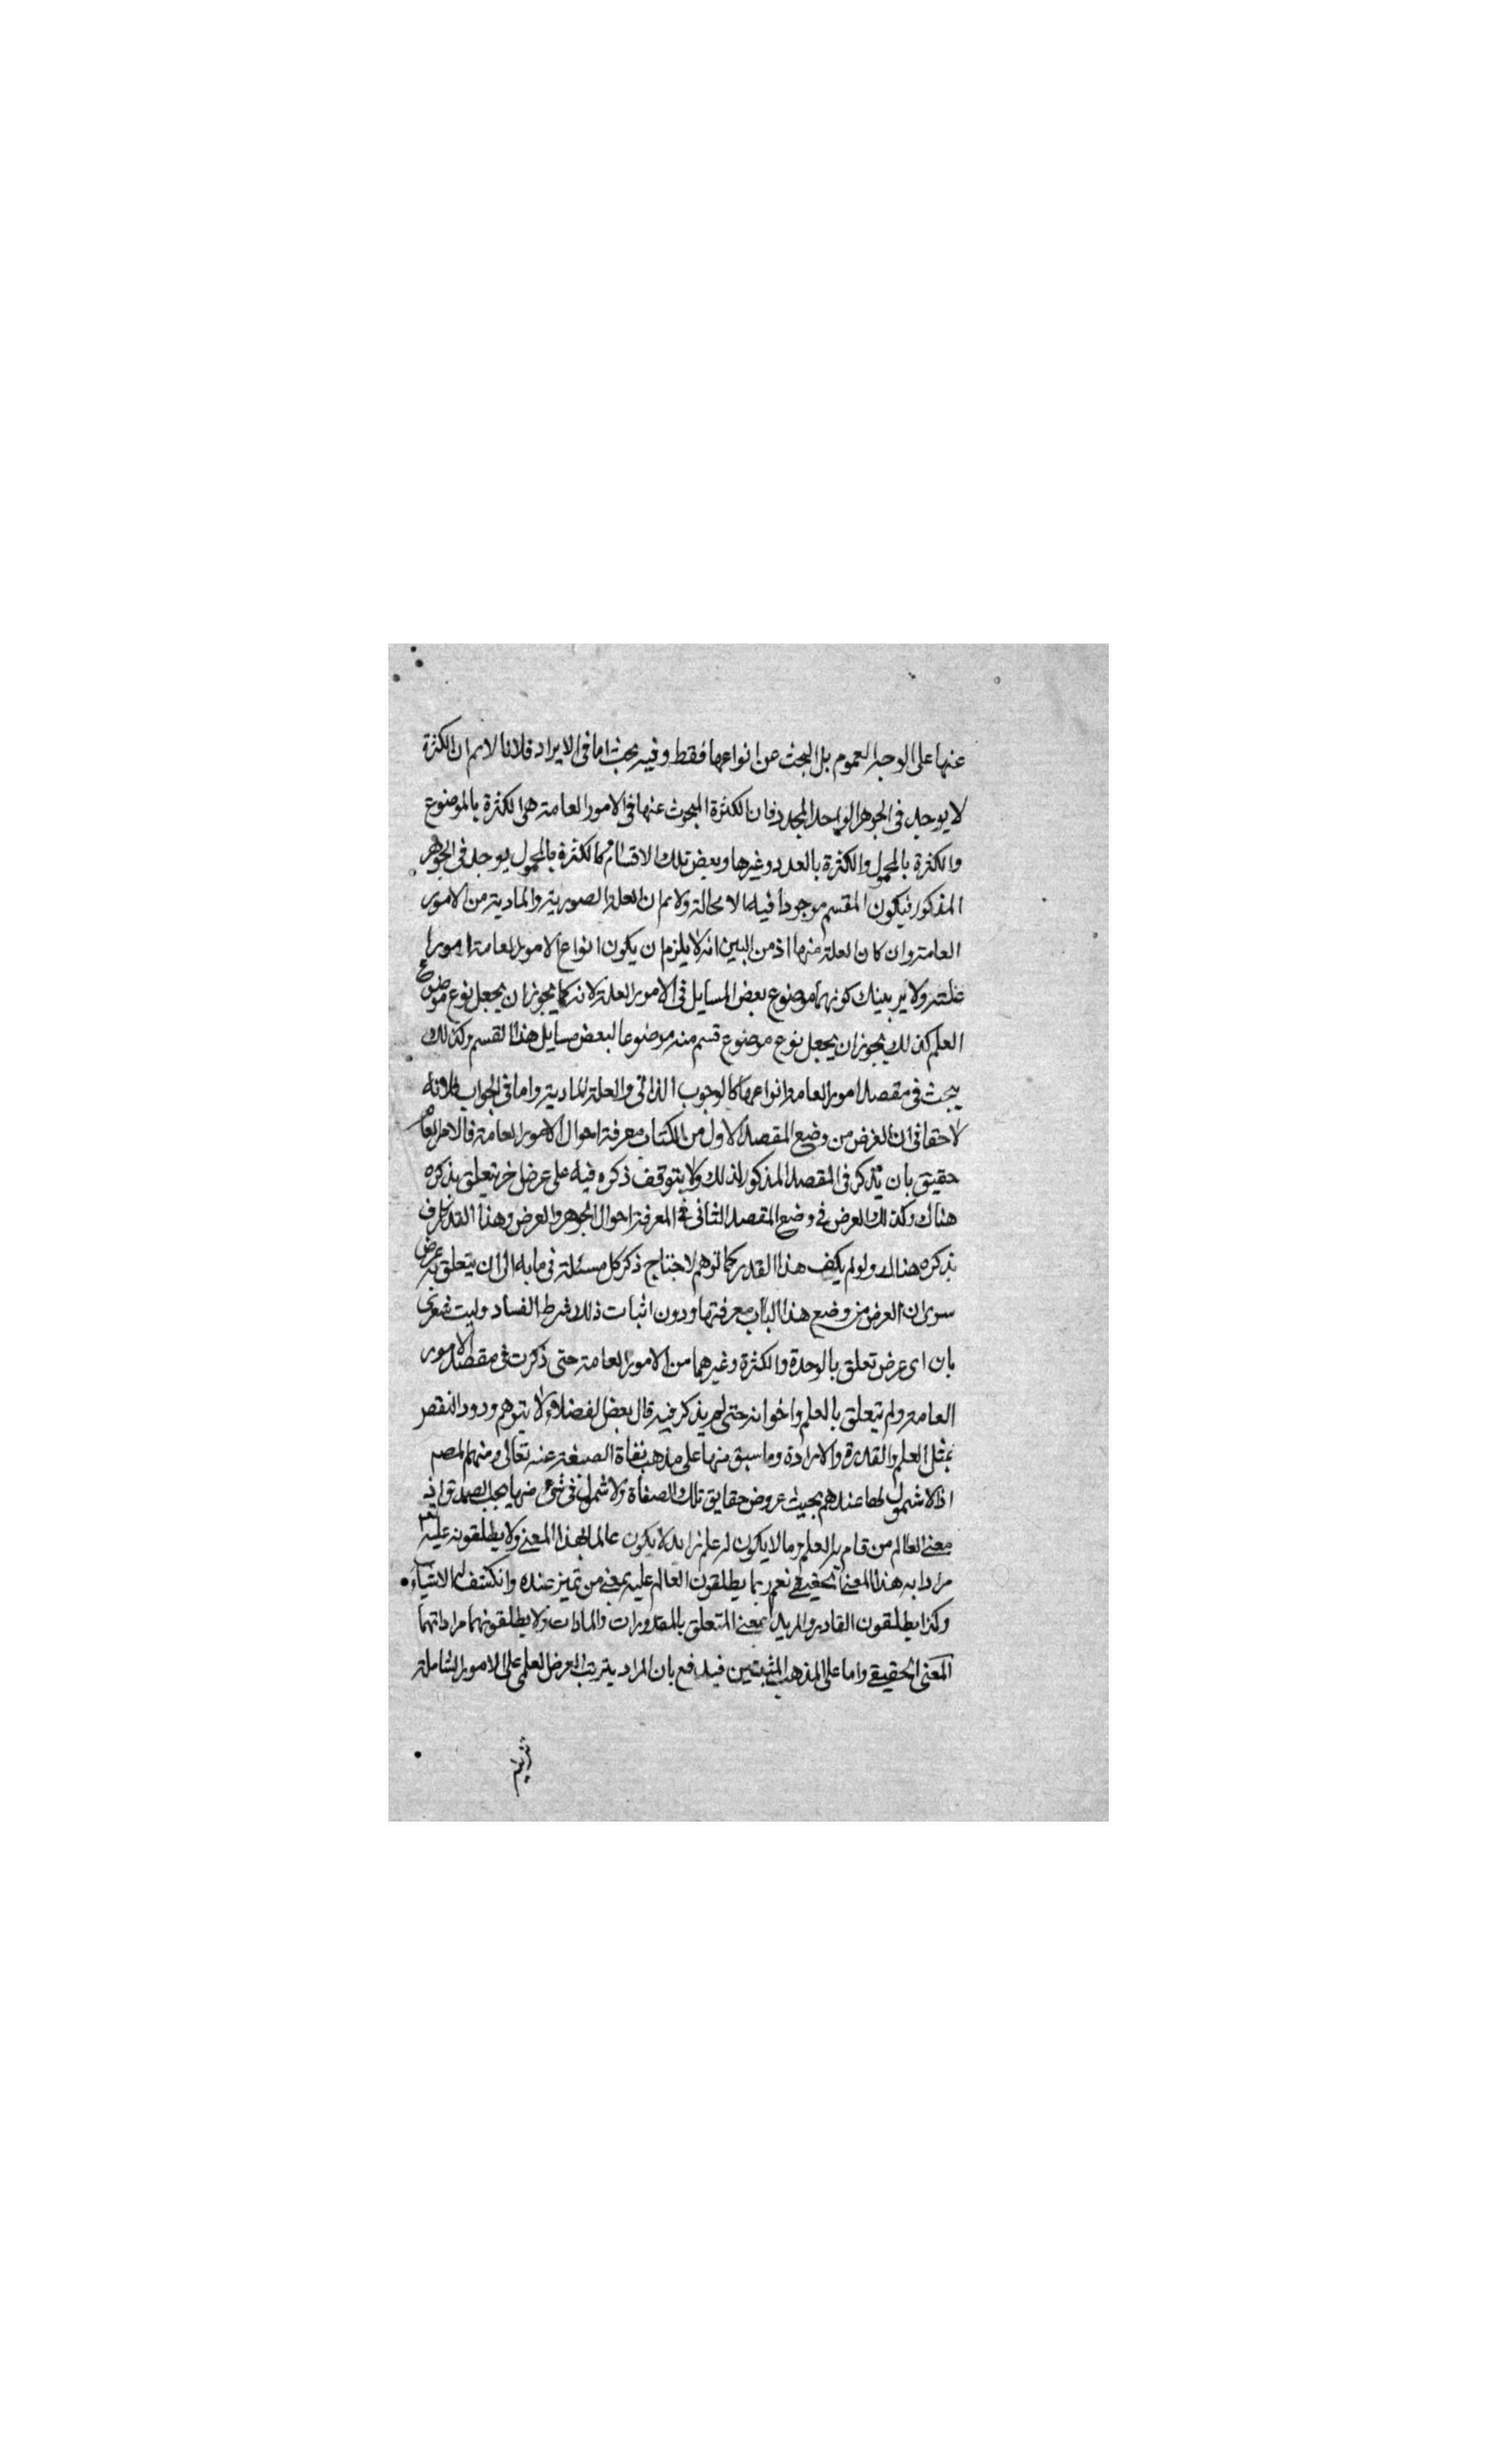 عنها على الوجه العموم بل البحث عن انواعها فقط وفيه بحث اما في الايراد فلانا لانم ان الكثرة
لا يوجد في الجوهر الواحد المجرد فان الكثرة المبحوث عنها في الامور العامة هي الكثرة بالموضوع
والكثرة بالمحمول والكثرة بالعدد وغيرها وبعض تلك الاقسام كالكثرة بالمحمول يوجد في الجوهر
المذكور فيكون المقسم موجودا فيه لا محالة ولانم ان العلة الصورية والمادية من الامور
العامة وان كان العلة منها اذ من البين انه لا يلزم ان يكون انواع الامور العامة امورا
عامة ولا يريبنك كونهما موضوع بعض المسايل في الامور العامة لانه كما يجوز ان يجعل نوع موضوع
العلم كذلك يجوز ان يجعل نوع موضوع قسم منه موضوعا لبعض مسايل هذا القسم وكذلك
يبحث في مقصد امور العامة انواعها كالوجوب الذاتي والعلة المادية واما في الجواب فلانه
لا خفا في ان الغرض من وضع المقصد الاول من الكتاب معرفة احوال الامور العامة فالامر العام
حقيق بان يذكر في المقصد المذكور لذلك ولا يتوقف ذكره فيه على غرض اخر تعلق بذكره
هناك وكذلك الغرض في وضع المقصد الثاني معرفة احوال الجوهر والعرض وهذا القدر كاف
بذكره هناك ولو لم يكف هذا القدر كما توهم لاحتاج ذكر كل مسئلة في بابه الى ان يتعلق به غرض
سوى ان الغرض من وضع هذا الباب معرفتها ودون اثبات ذلك خرط القتاد وليت شعري
بان اى غرض تعلق بالوحدة والكثرة وغيرهما من الامور العامة حتى ذكرت في مقصد الامور
العامة ولم يتعلق بالعلم واخواته حتى لم يذكر فيه قال بعض الفضلاء لا يتوهم ورود النقض
بمثل العلم والقدرة والارادة وما سبق منها على مذهب نفاة الصفة عنه تعالى ومنهم المصـ
اذ لا شمول لها عندهم بحيث عروض حقايق تلك الصفاة ولا شمول في شيء منها بحسب الصدق اذ
معنى العالم من قام به العلم وما لا يكون له علم زايد لا يكون عالما بهذا المعنى ولا يطلقونه عليه
مرادا به هذا المعنى الحقيقي نعم ربما يطلقون العالم عليه بمعنى من تميز عنده وانكشف له الاشياء
وكذا يطلقون القادر والمريد بمعنى المتعلق بالمقدورات والمرادات ولا يطلقونهما مرادا بهما
المعنى الحقيقي واما على المذهب المثبتين فيدفع بان المراد يترتب الغرض العلمي على الامور الشاملة